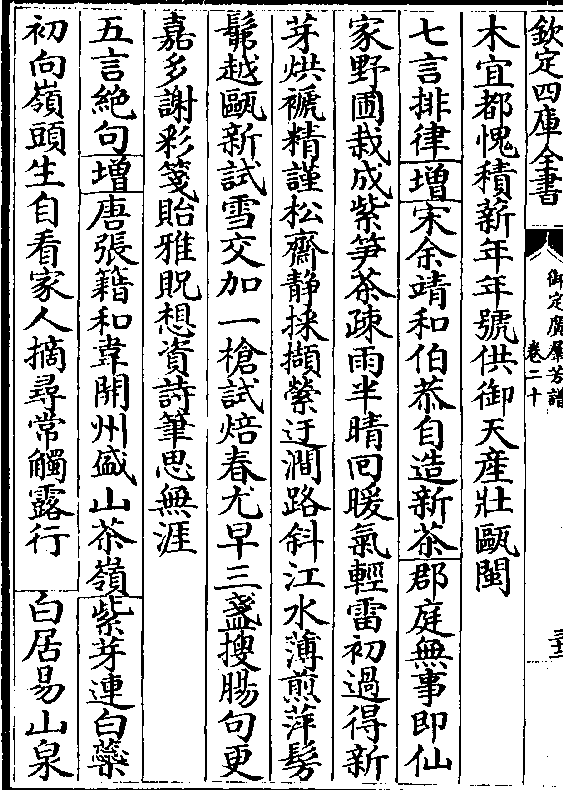 欽定四庫全書
御定廣羣芳譜
卷二十
木宜都愧積薪年年號供御天産壯甌閩
七言排律增宋余靖和伯恭自造新茶郡庭無事即仙
家野圃栽成紫笋茶疎雨半晴回暖氣輕雷初過得新
芽烘褫精謹松齋静採擷縈迂澗路斜江水薄煎萍髣
髴越甌新試雪交加一槍試焙春尤早三盞搜腸句更
嘉多謝彩箋貽雅貺想資詩筆思無涯
五言絶句增唐張籍和韋開州盛山茶嶺紫芽連白蘂
初向嶺頭生自看家人摘尋常觸露行　白居易山泉